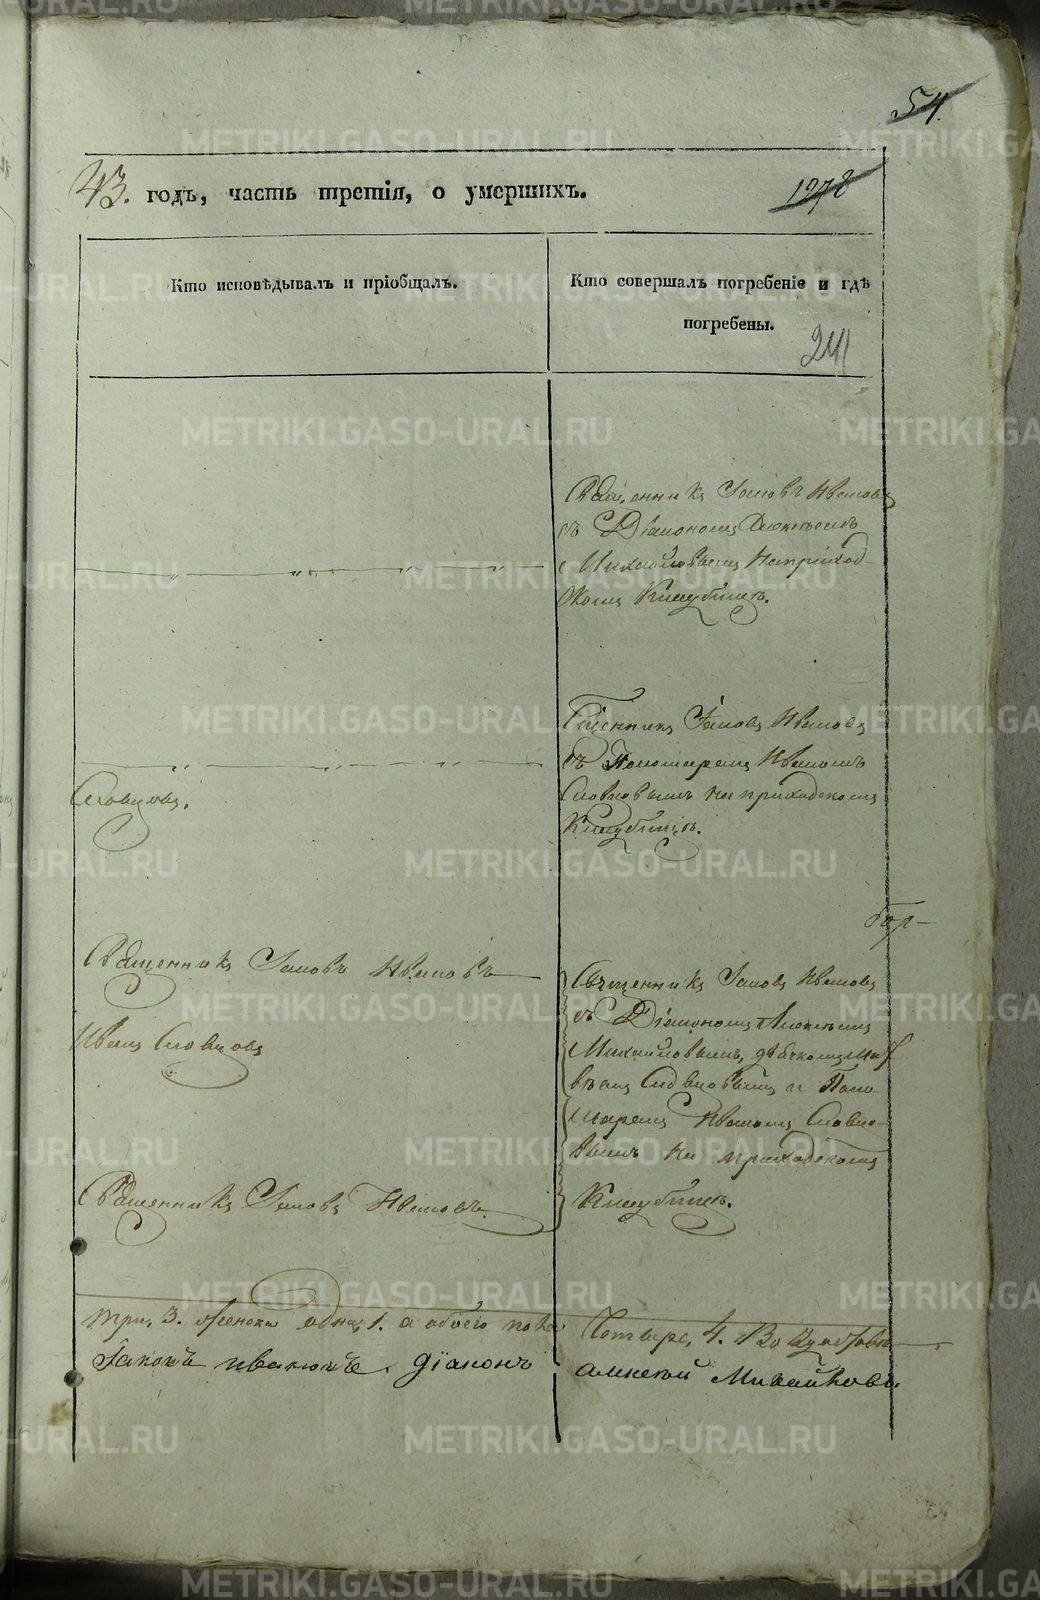 54.
43. годъ, часть третія, о умершихъ.
1278
Кто исповѣдывалъ и пріобщалъ.
Кто совершалъ погребеніе и гдѣ
погребены.
241
Священникъ Іаковъ Ивановъ
съ Діакономъ Алексѣемъ
Михайловымъ на приход-
скомъ Кладбищѣ.
Священникъ Іаковъ Ивановъ
съ Пономаремъ Иваномъ
Словцовымъ на приходскомъ
Кладбищѣ.
Словцовъ.
Священникъ Іаковъ Ивановъ
Иванъ Словцовъ
Священникъ Іаковъ Ивановъ
съ Діакономъ Алексѣемъ
Михайловымъ, дьячкомъ Мат
вѣемъ Словцовымъ и Поно-
маремъ Иваномъ Словцо-
вымъ на приходскомъ
Кладбищѣ.
Священникъ Іаковъ Ивановъ.
три, 3. женска одна, 1. а обоего пола
Четыре, 4.
Іаковъ Ивановъ. діаконъ
Алексѣй Михайловъ.
METRIKI.GASO-URAL.RU